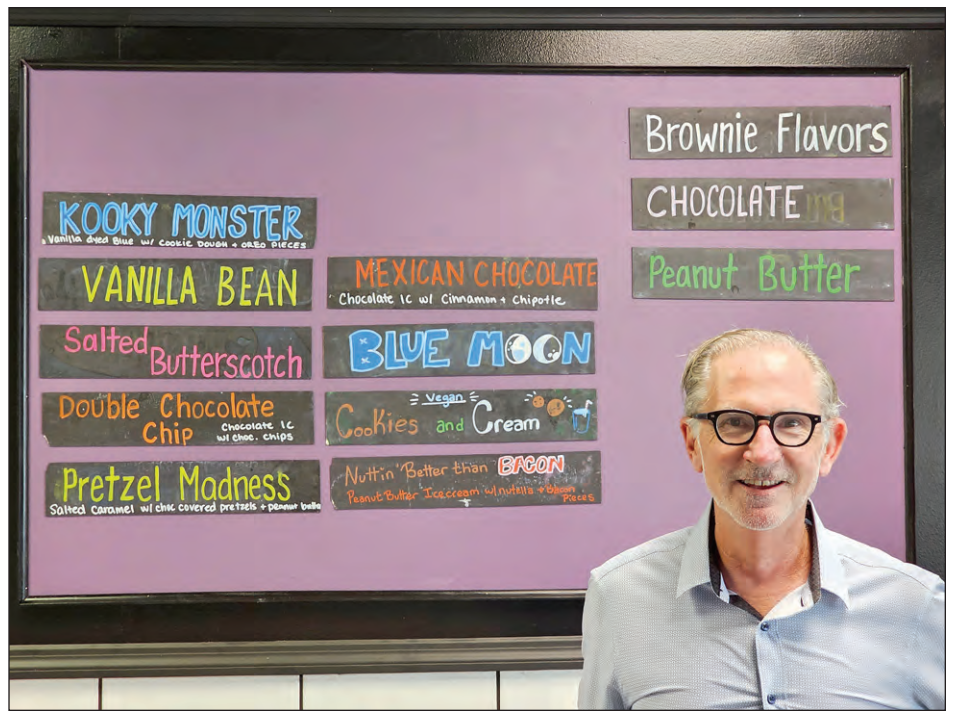 KOOKY MONSTER
Vanilla dyed Blue w/ Cookie DOUGH + OREO PIECES
VANILLA BEAN
Salted
Butterscotch
Double Chocolate
Chip
Chocolate IC
w/ choc. chips
Pretzel Madness
Salted Caramel w/ choc covered pretzels + peanut balls
MEXICAN CHOCOLATE
Chocolate IC w/ Cinnamon + Chipotle
BLUE MOON
Vegan
Cookies and Cream
Nuttin' Better than BACON
Peanut Butter Icecream w/ nutella + Bacon
Pieces
Brownie Flavors
CHOCOLATE
Peanut Butter